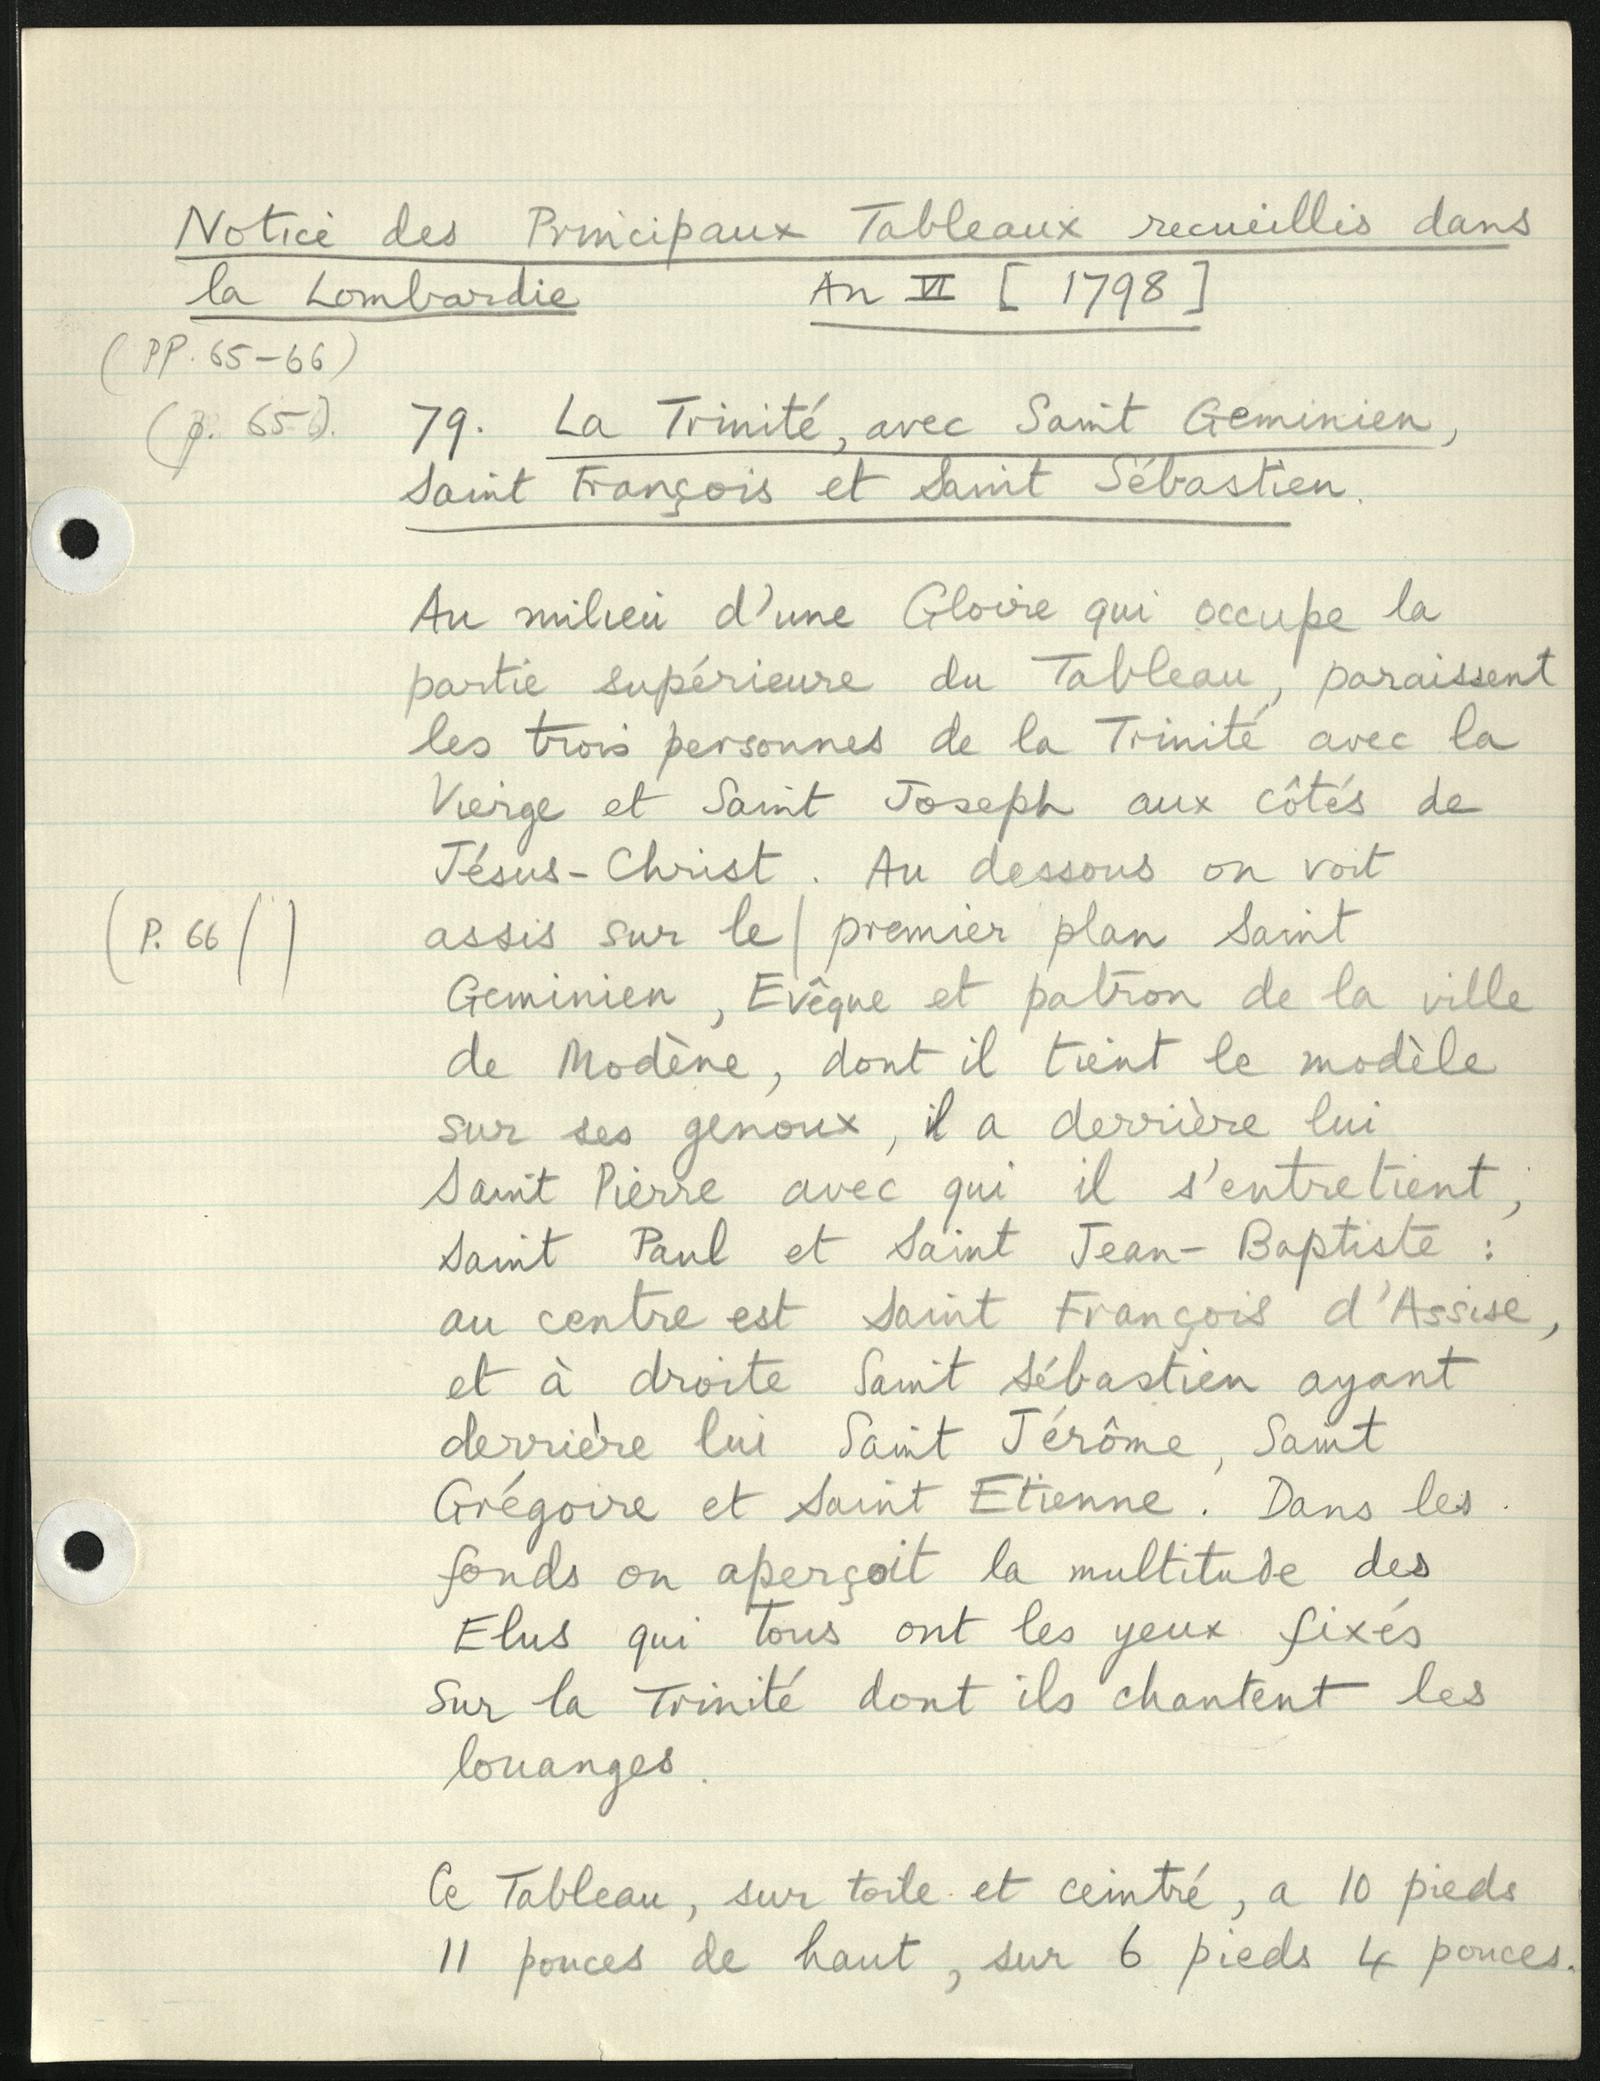 Notice des Principaux Tableaux recueillis dans
la Lombardie An VI [1798]
(PP. 65-66)
(p. 65). 79. La Trinité, avec Saint Geminien,
Saint François et Saint Sébastien.
Au milieu d'une Gloire qui occupe la
partie supérieure du Tableau, paraissent
les trois personnes de la Trinité avec la
Vierge et Saint Joseph aux côtés de
Jésus-Christ. Au dessous on voit
(P. 66/) assis sur le / premier plan Saint
Geminien, Evêque et patron de la ville
de Modène, dont il tient le modèle
sur ses genoux, il a derrière lui
Saint Pierre avec qui il s'entretient,
Saint Paul et Saint Jean-Baptiste :
au centre est Saint François d'Assise,
et à droite Saint Sébastien ayant
derrière lui Saint Jérôme, Saint
Grégoire et Saint Etienne. Dans les
fonds on aperçoit la multitude des
Elus qui tous ont les yeux fixés
sur la Trinité dont ils chantent les
louanges.
Ce Tableau, sur toile et ceintré, a 10 pieds
11 pouces de haut, sur 6 pieds 4 pouces.